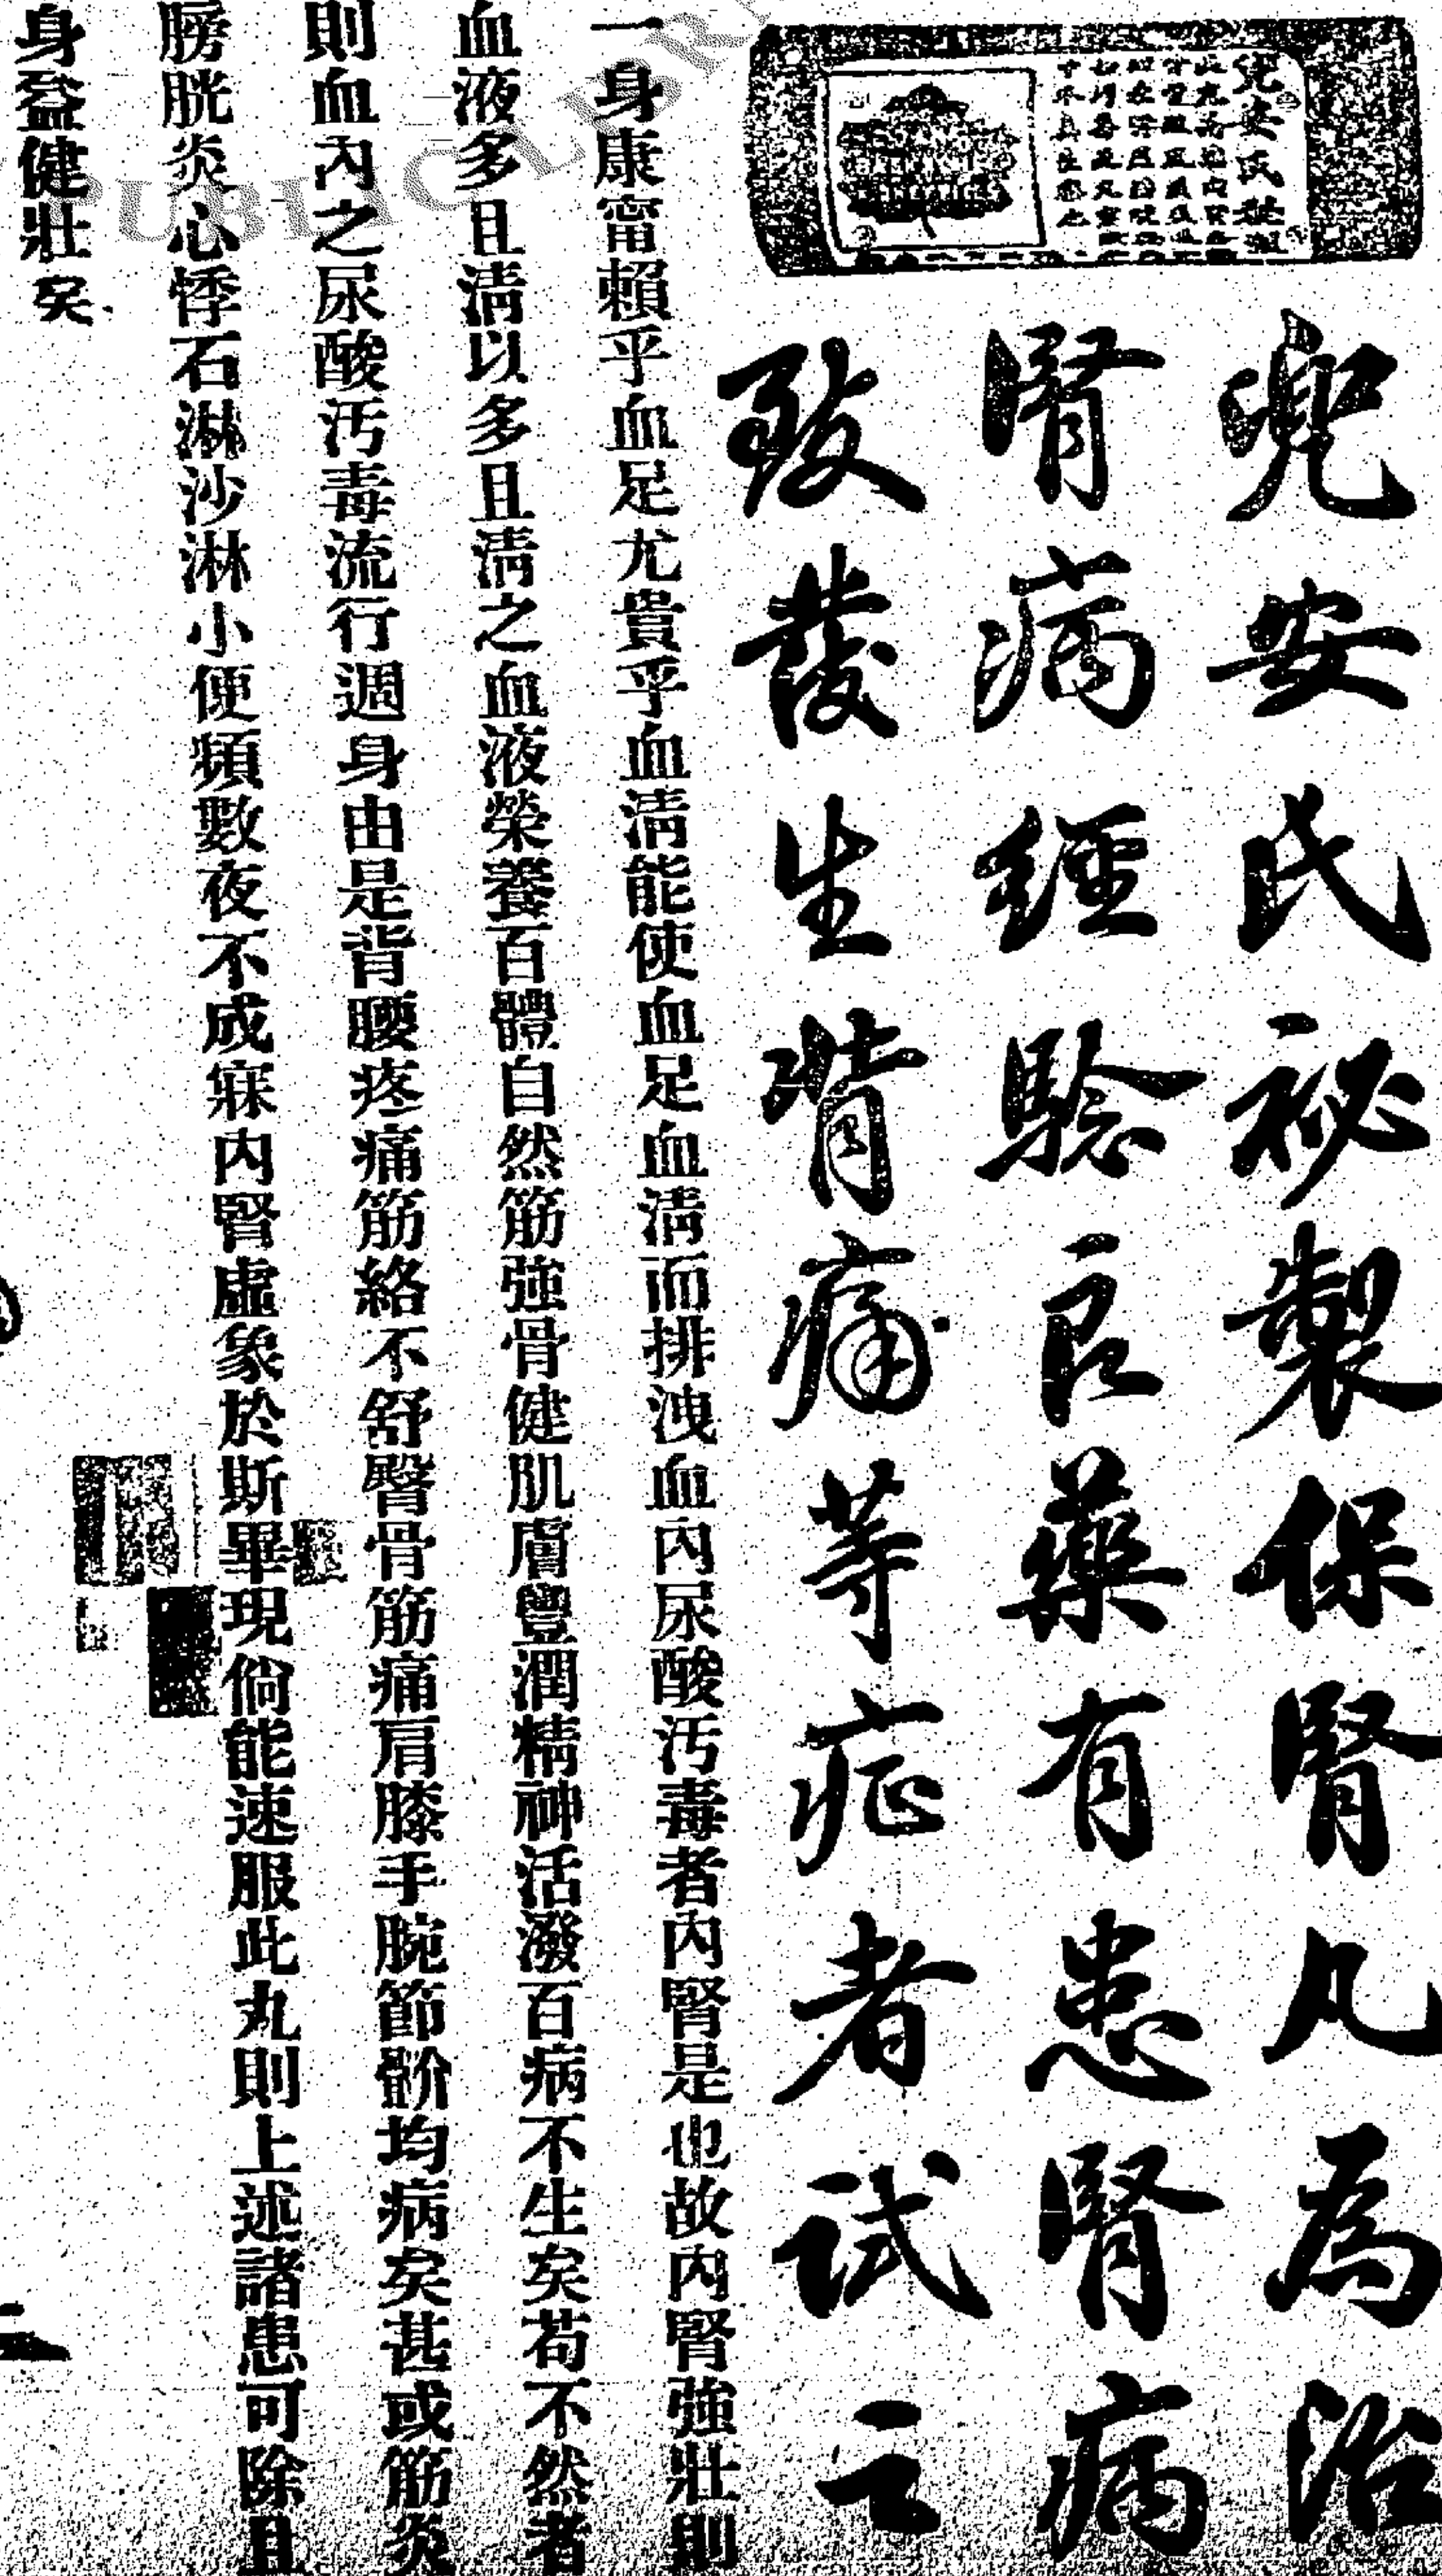 兜安氏祕製保腎凡為治
腎病經驗良藥有患腎病
致發生背痛等症者試之
一身康甯賴乎血足尤貴乎血清能使血足血清而排洩血內尿酸汚毒者內腎是也故內腎強壯則
血液多且清以多且清之血液榮養百體自然筋強骨健肌膚豐潤精神活潑百病不生矣苟不然者
則血內之尿酸汚毒流行週身由是背腰疼痛筋絡不舒臀骨筋痛肩膝手腕節骱均病矣甚或筋炎
膀胱炎心悸石淋沙淋小便頻數夜不成寐内腎虛象於斯畢現倘能速服此丸則上述諸患可除且
身益健壯矣
PUBLIC LIBRARY